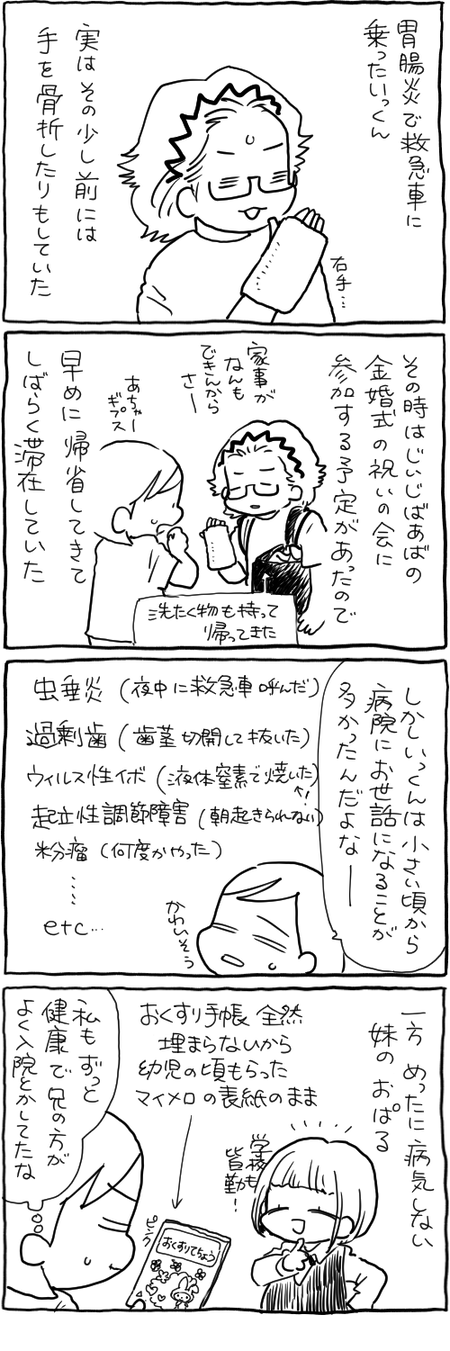 胃腸炎で救急車に
乗ったいっくん
実はその少し前には
手を骨折したりもしていた
右手…
その時はじぃじばぁばの
金婚式の祝いの会に
参加する予定があったので
家事が
なんも
できんから
さー
あちゃー
ギプス
早めに帰省してきて
しばらく滞在していた
洗たく物も持って
帰ってきた
しかしいっくんは小さい頃から
病院にお世話になることが
多かったんだよなー
虫垂炎(夜中に救急車呼んだ)
過剰歯(歯茎切開して抜いた)
ウィルス性イボ(液体窒素で焼いた)
↑!
起立性調節障害(朝起きられない)
粉瘤(何度かやった)
……
etc…
かわいそう
一方めったに病気しない
妹のおぱる
学校も
皆勤!
おくすり手帳全然
埋まらないから
幼児の頃もらった
マイメロの表紙のまま
ピンク
おくすりてちょう
私もずっと
健康で兄の方が
よく入院とかしてたな